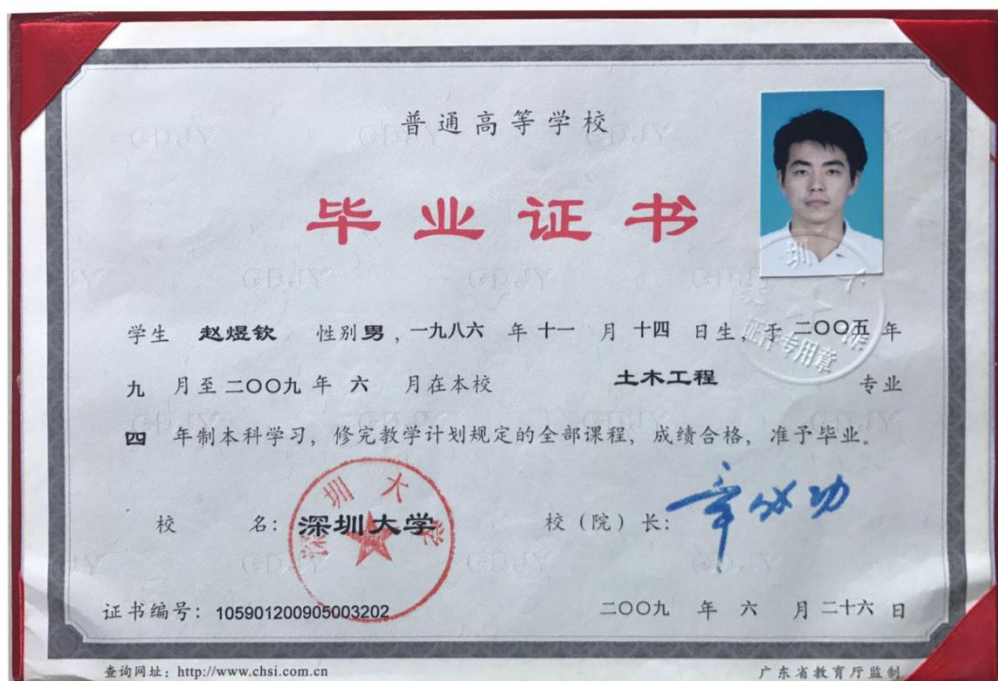 普通高等学校
毕业证书
学生 赵煜钦 性别男，一九八六 年十一 月 十四 日生，于 二〇〇五 年
九 月至 二〇〇九 年 六 月在本校 土木工程 专业
四 年制本科学习，修完教学计划规定的全部课程，成绩合格，准予毕业。
校 名：深圳大学 校（院）长：章必功
深圳大学
证件专用章
证书编号：105901200905003202 二〇〇九 年 六 月 二十六 日
查询网址：http://www.chsi.com.cn 广东省教育厅监制